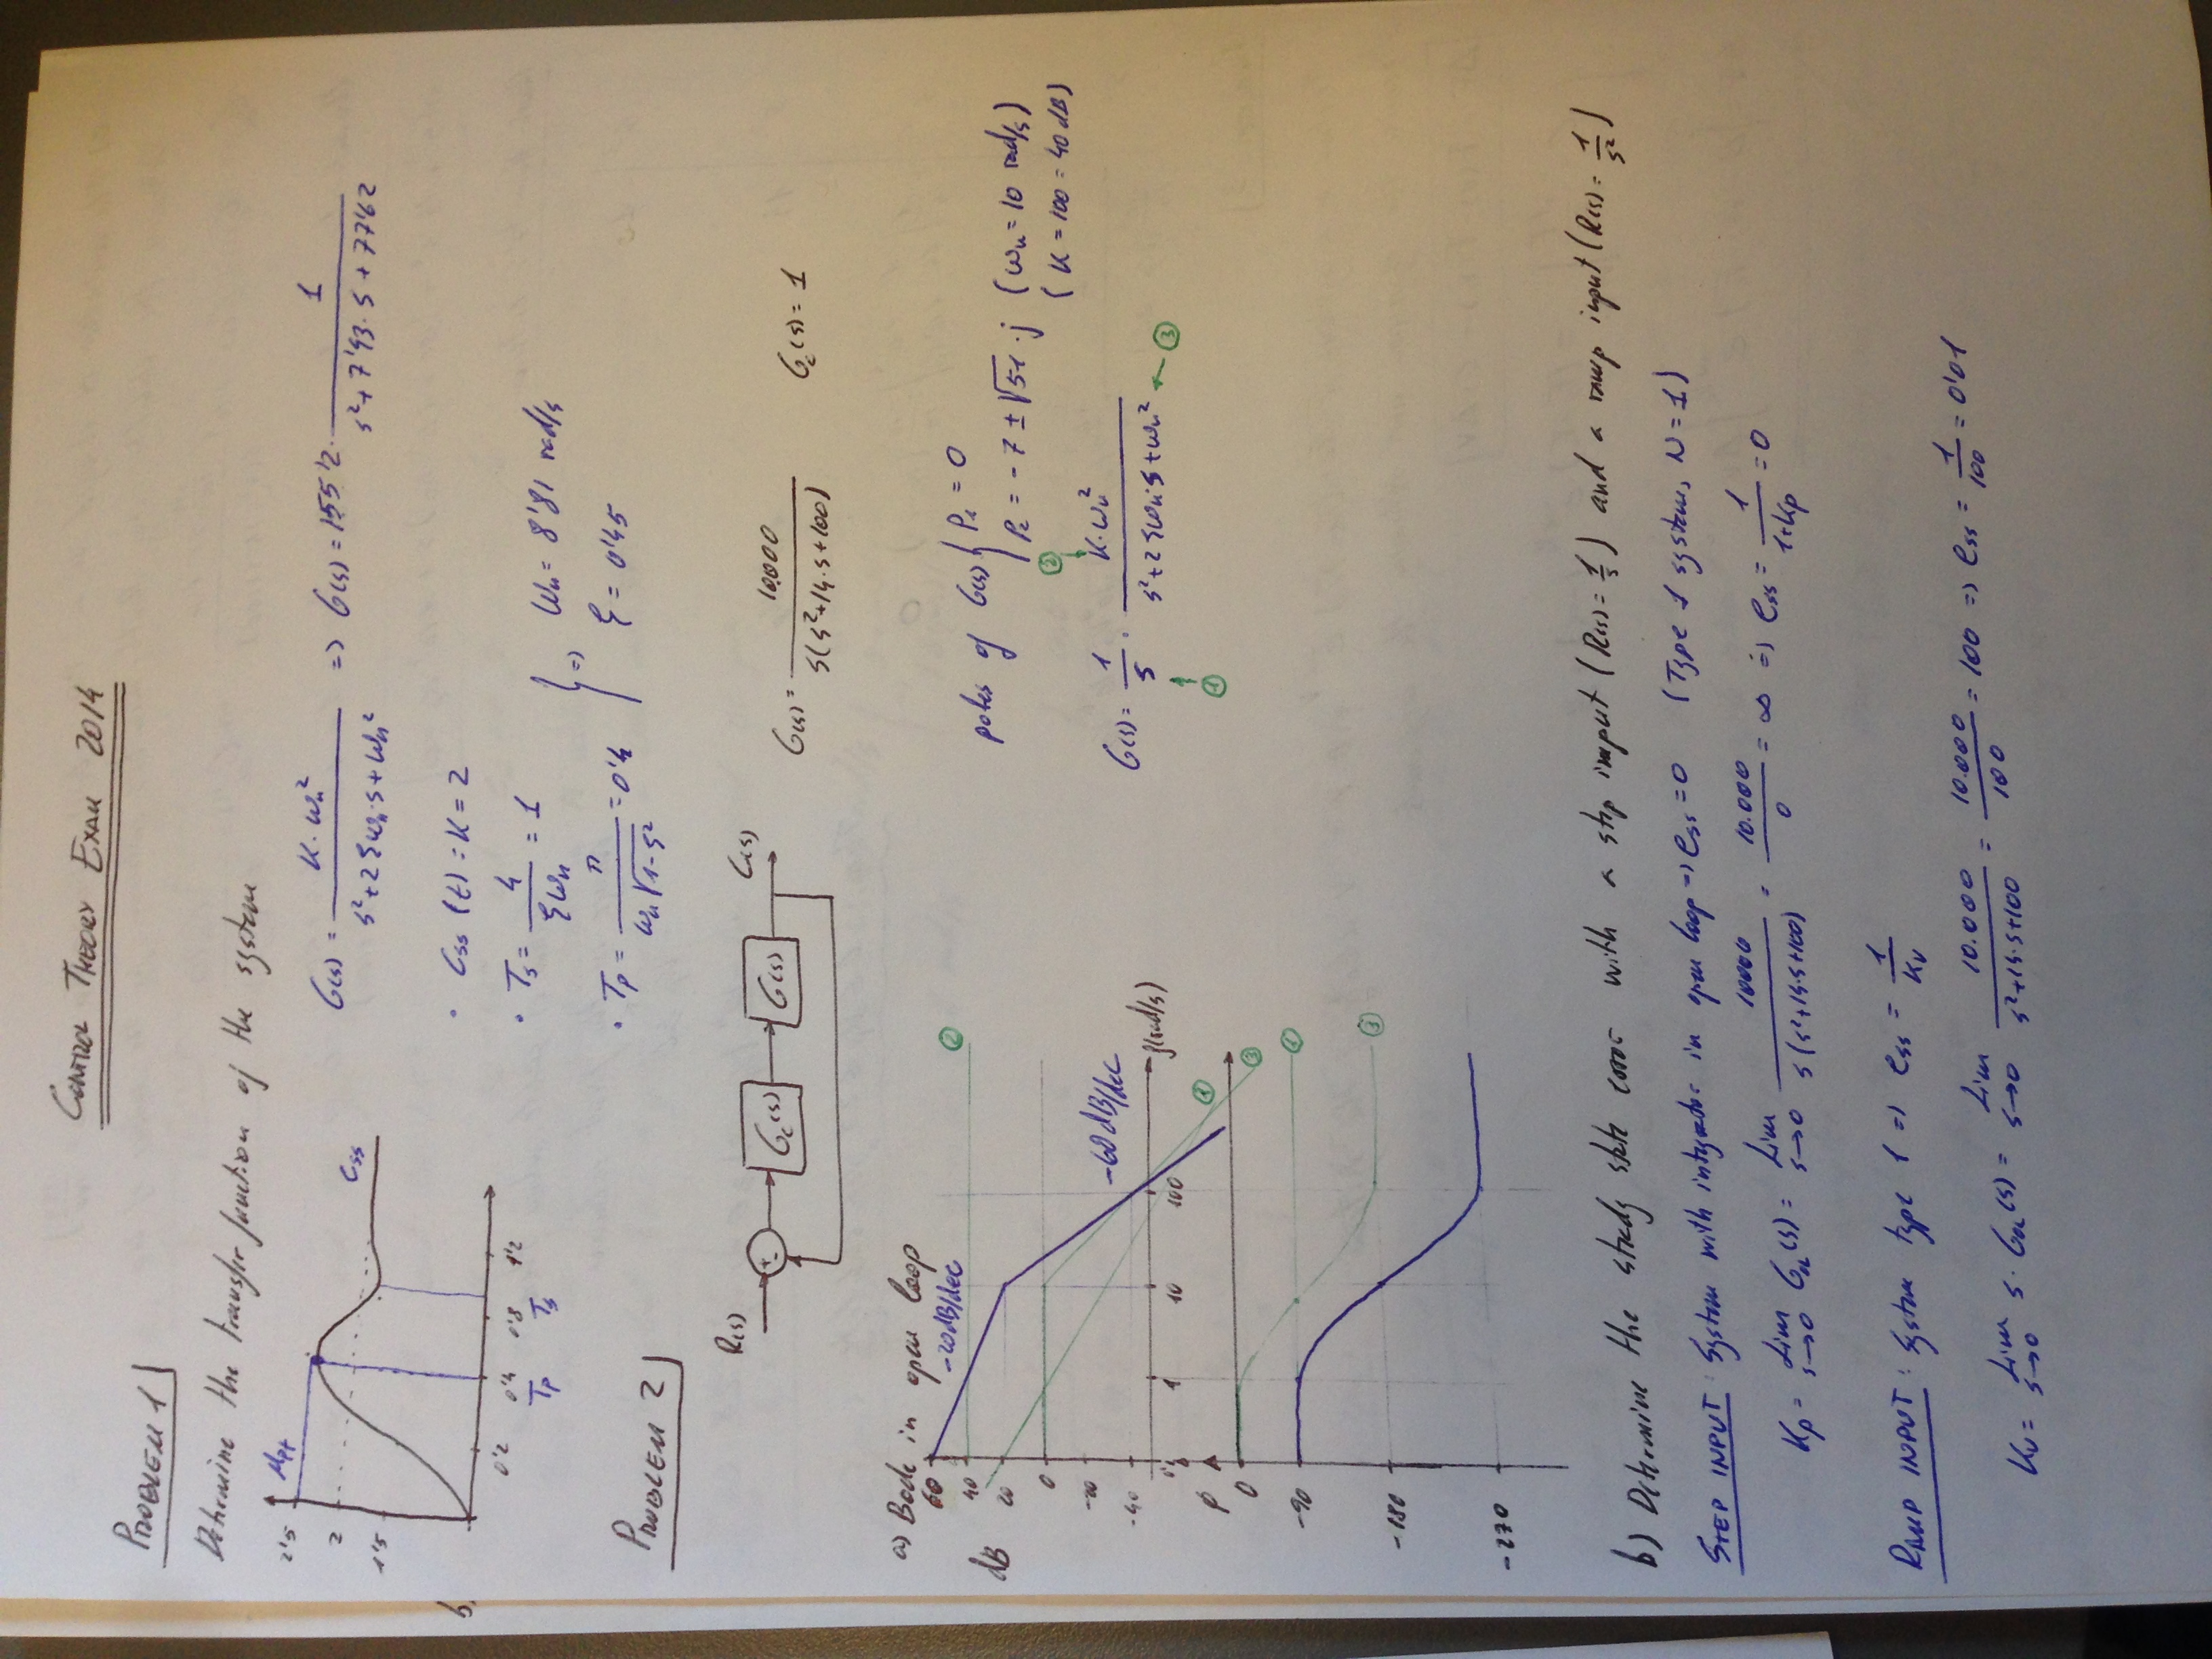 CONTROL THEORY EXAM 2014
PROBLEM 1
Determine the transfer function of the system
2'5
Mpt
2
1'5
Css
0'2 0'4 0'8 1'2
Tp Ts
G(s) = K·ωn² / (s²+2ξωn·s+ωn²) => G(s) = 155'2 · 1 / (s²+7'93·s+77'62)
· Css (t) = K = 2
· Ts = 4 / (ξωn) = 1
· Tp = π / (ωn√(1-ξ²)) = 0'4
=> ωn = 8'81 rad/s
ξ = 0'45
b.
PROBLEM 2
R(s) + - Gc(s) G(s) C(s)
G(s) = 10.000 / (s(s²+14·s+100)) Gc(s) = 1
a) Bode in open loop
dB
60
40
20
0
-20
-40
-20dB/dec
-60dB/dec
②
0'1 1 10 100 (rad/s)
①
③
φ
0
-90
-180
-270
①
③
poles of G(s) P1 = 0
P2 = -7 ± √51·j (ωn = 10 rad/s)
(K = 100 = 40 dB)
②
G(s) = 1/s · K·ωn² / (s²+2ξωn·s+ωn²) ③
①
b) Determine the steady state error with a step imput (R(s) = 1/s) and a ramp input (R(s) = 1/s²)
STEP INPUT: System with integrator in open loop => ess = 0 (Type 1 system, N = 1)
Kp = Lim s→0 Gol(s) = Lim s→0 10000 / (s(s²+14·s+100)) = 10.000 / 0 = ∞ => ess = 1 / (1+Kp) = 0
RAMP INPUT: System type 1 => ess = 1 / Kv
Kv = Lim s→0 s·Gol(s) = Lim s→0 10.000 / (s²+14·s+100) = 10.000 / 100 = 100 => ess = 1/100 = 0'01